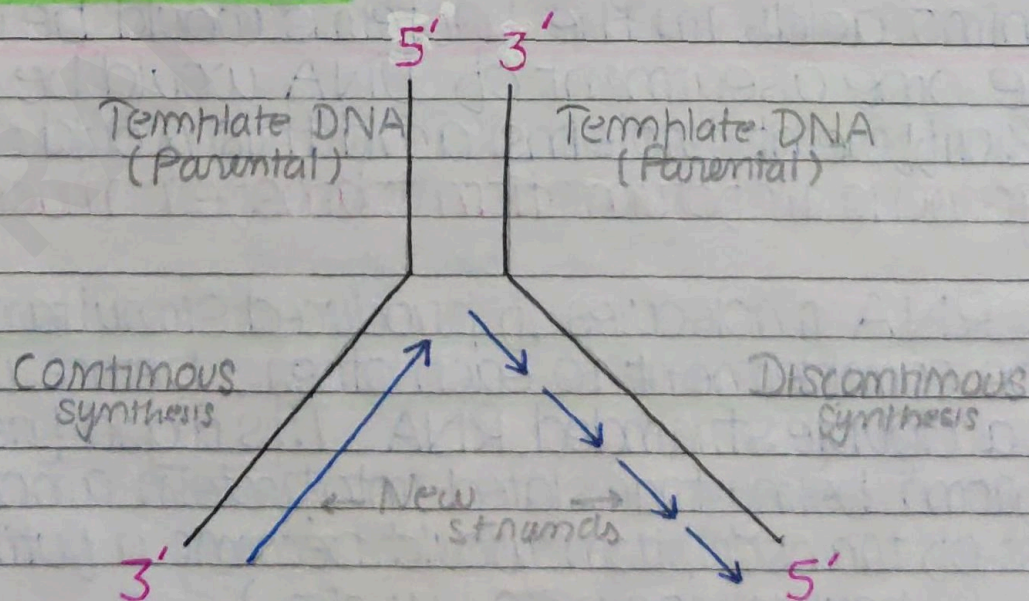 5' 3'
Template DNA
(Parental)
Template DNA
(Parental)
Continous
synthesis
Discontinous
synthesis
← New →
strands
3'
5'